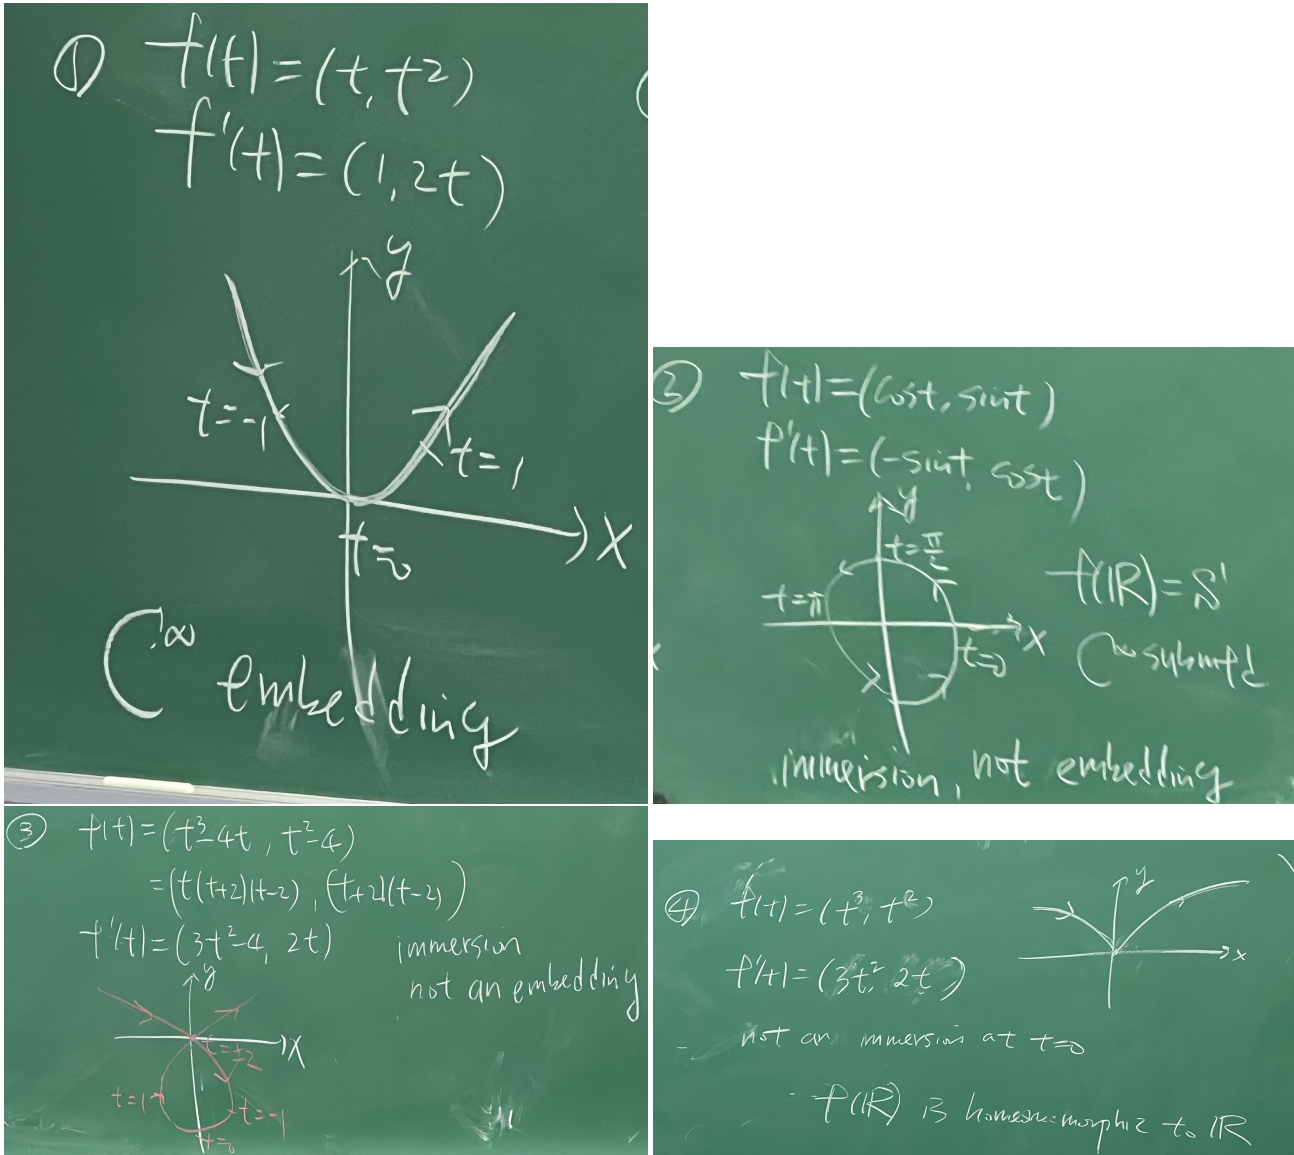 ① f(t)=(t, t²)
f'(t)=(1, 2t)
y
t=-1
t=1
x
t=0
C^∞ embedding
② f(t)=(cost, sint)
f'(t)=(-sint, cost)
y
t=π/2
t=π
x
t=0
f(ℝ)=S¹
C^∞ submfd
immersion, not embedding
③ f(t)=(t³-4t, t²-4)
=(t(t+2)(t-2), (t+2)(t-2))
f'(t)=(3t²-4, 2t)
immersion
not an embedding
y
x
t=±2
t=1
t=-1
t=0
④ f(t)=(t³, t²)
y
x
f'(t)=(3t², 2t)
not an immersion at t=0
f(ℝ) is homeomorphic to ℝ